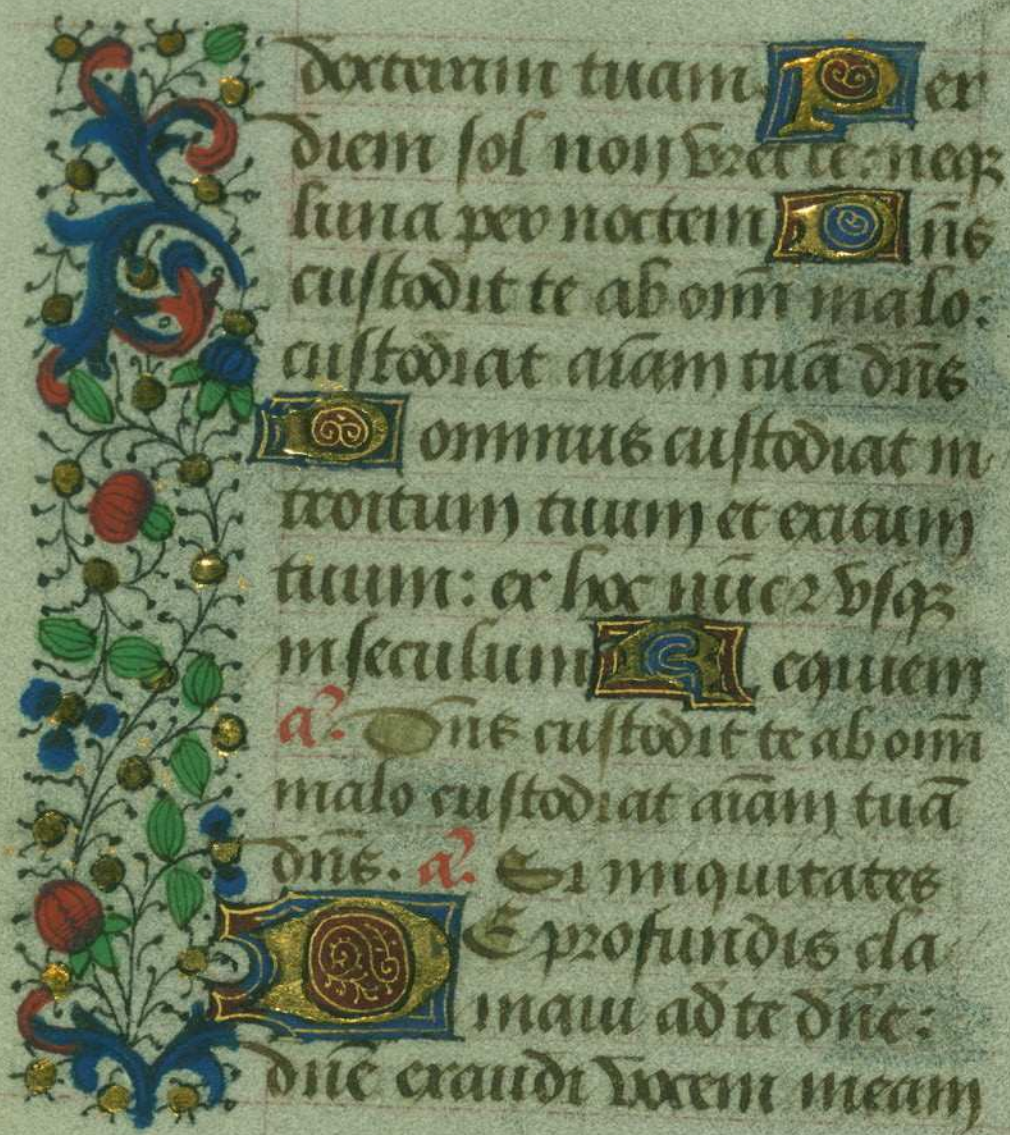 dexteram tuam Per
diem sol non vret te: neqꝫ
luna per noctem Dn̄s
custodit te ab om̄i malo:
custodiat aīam tuā dn̄s
Dominus custodiat in
troitum tuum et exitum
tuum: ex hoc nūc ⁊ vsqꝫ
in seculum Requiem
a᷎. Dn̄s custodit te ab om̄i
malo custodiat aīam tuā
dn̄s. a᷎. Si iniquitates
DE profundis cla
maui ad te dn̄e:
dn̄e exaudi vocem meam